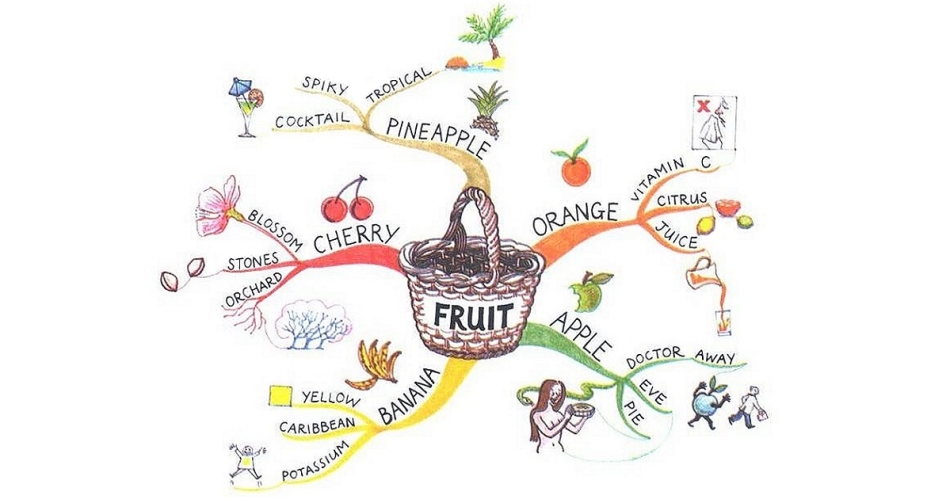 FRUIT
ORANGE
VITAMIN C
CITRUS
JUICE
X
APPLE
DOCTOR AWAY
EVE
PIE
BANANA
YELLOW
CARIBBEAN
POTASSIUM
CHERRY
BLOSSOM
STONES
ORCHARD
PINEAPPLE
SPIKY
TROPICAL
COCKTAIL